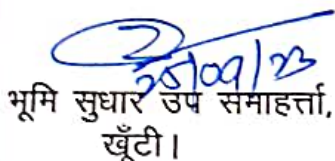 25/09/23
भूमि सुधार उप समाहर्त्ता,
खूँटी।